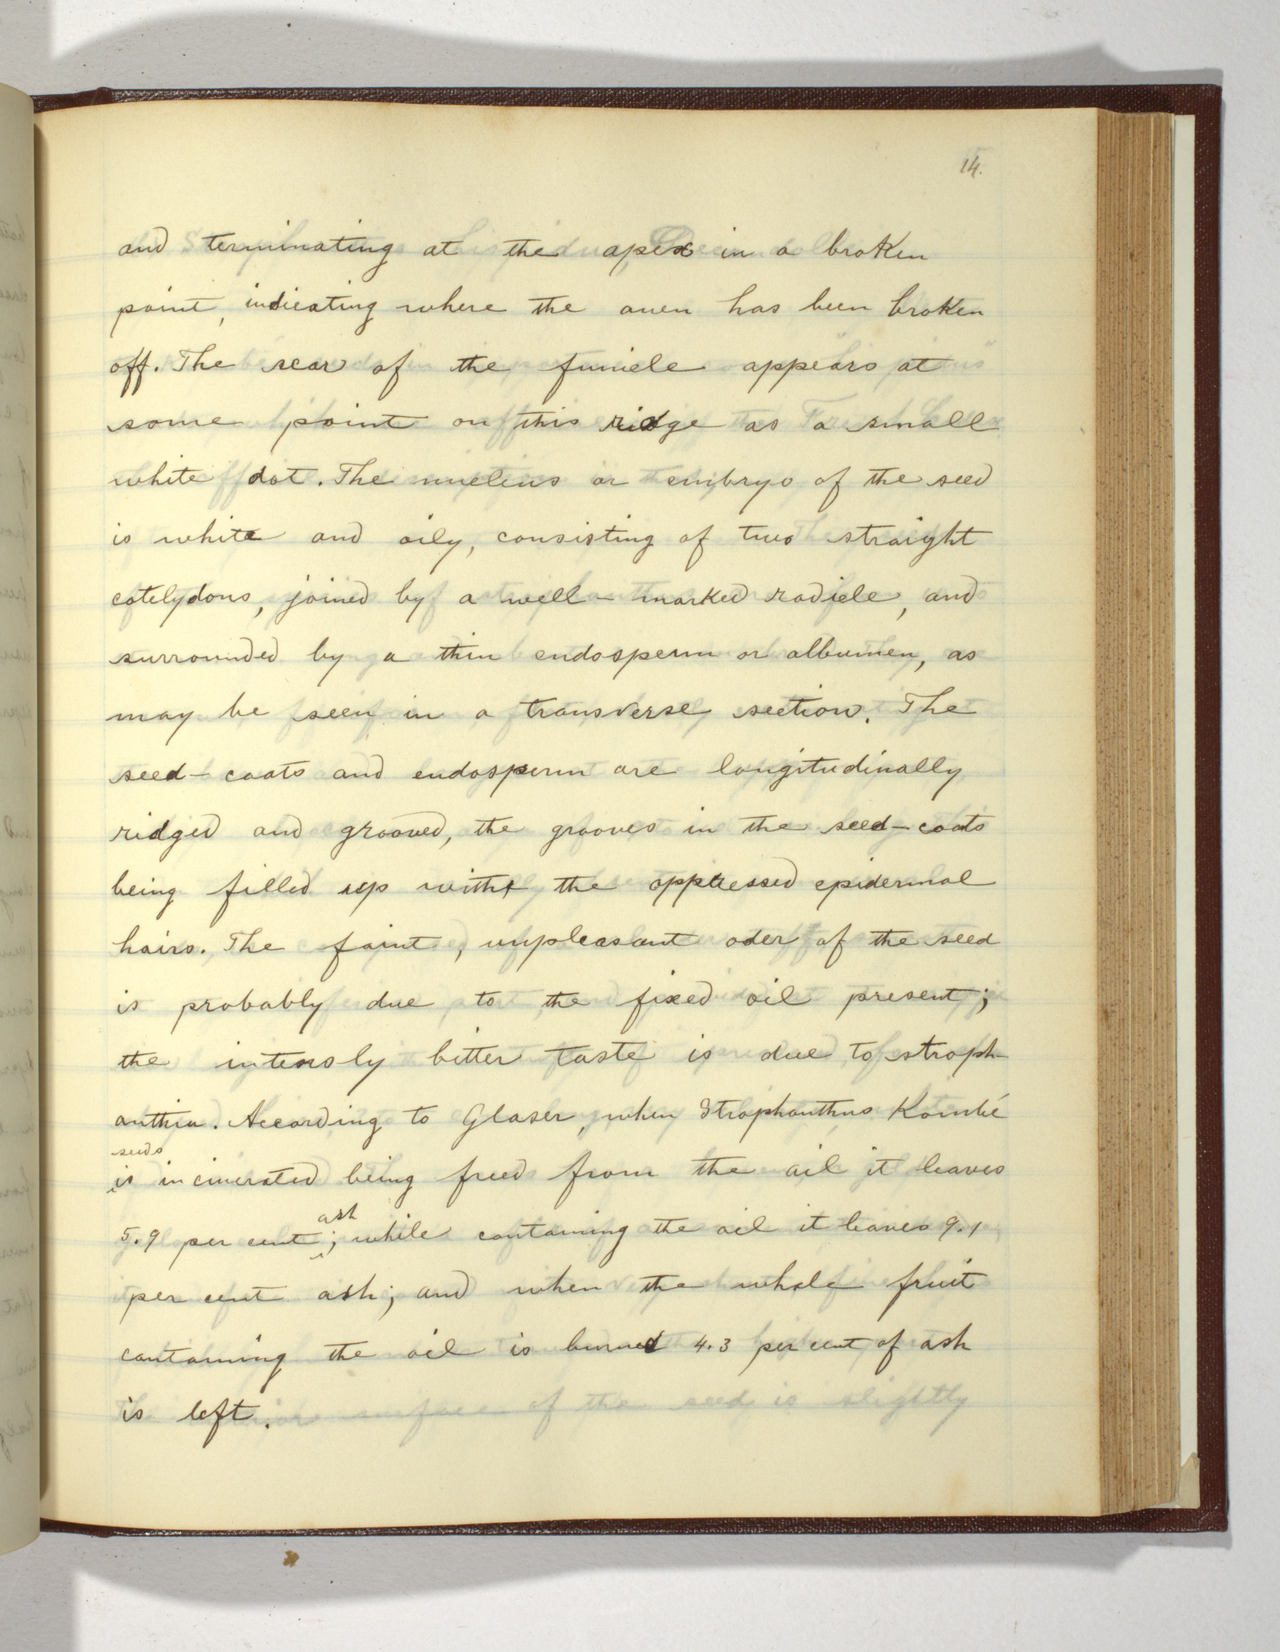 14.
and terminating at the apex in a broken
point, indicating where the awn has been broken
off. The scar of the funicle appears at
some point on this ridge as a small
white dot. The nucleus or embryo of the seed
is white and oily, consisting of two straight
cotelydons, joined by a well-marked radicle, and
surrounded by a thin endosperm or albumen, as
may be seen in a transverse section. The
seed-coats and endosperm are longitudinally
ridged and grooved, the grooves in the seed-coats
being filled up with the appressed epidermal
hairs. The faint, unpleasant oder of the seed
is probably due to the fixed oil present;
the intensly bitter taste is due to stroph-
anthin. According to Glaser, when Strophanthus Kombé
seeds
is incinerated being freed from the oil it leaves
ash
5.9 per cent; while containing the oil it leaves 9.1
per cent ash; and when the whole fruit
containing the oil is burned 4.3 per cent of ash
is left.